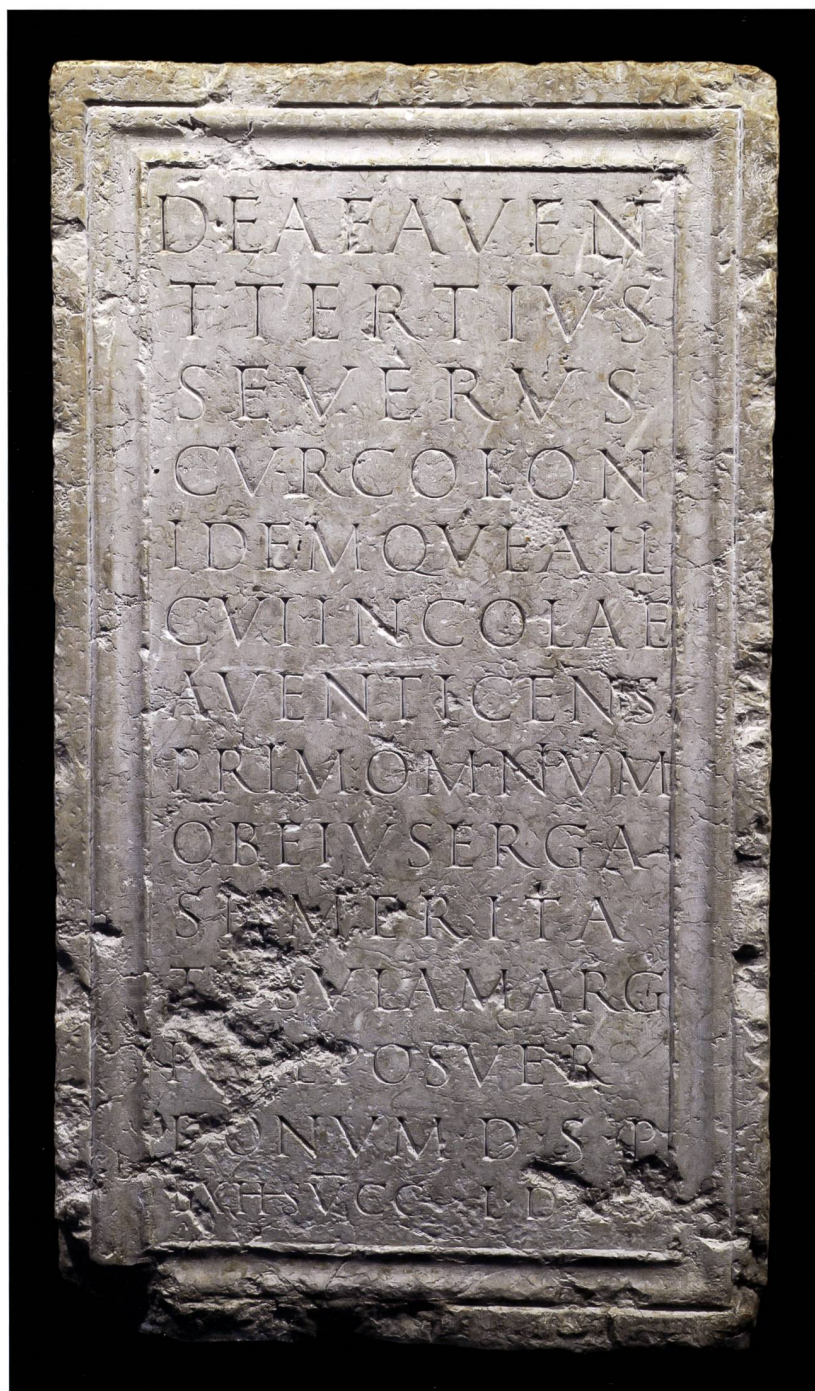 DEAEAVEN
TTERTIVS
SEVERVS
CVRCOLON
IDEMQVEALL
CVIINCOLAE
AVENTICENS
PRIMOMNVM
OBEIVSERGA
SEMERITA
TABVLAMARG
POSVER
DONVM D S P
EXHSV̅CC L D